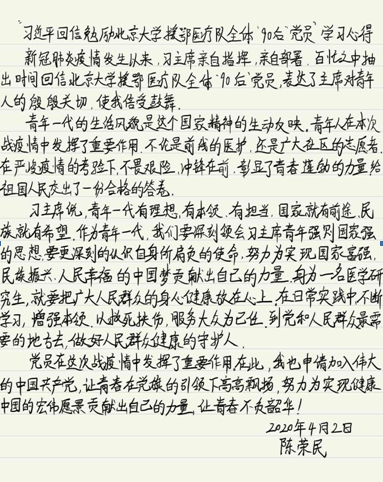 习近平回信勉励北京大学援鄂医疗队全体“90后”党员”学习心得
新冠肺炎疫情发生以来，习主席亲自指挥，亲自部署，百忙之中抽
出时间回信北京大学援鄂医疗队全体“90后”党员，表达了主席对青年
人的殷殷关切，使我倍受鼓舞。
青年一代的生活风貌是这个国家精神的生动反映。青年人在本次
战疫情中发挥了重要作用，不论是前线的医护，还是广大社区的志愿者，
在严峻疫情的考验下，不畏艰险，冲锋在前，彰显了青春蓬勃的力量，给
祖国人民交出了一份合格的答卷。
习主席说，青年一代有理想，有本领，有担当，国家就有前途，民
族就有希望。作为青年一代，我们要深刻领会习主席青年强则国家强
的思想，要更深刻的认识自身所肩负的使命，努力为实现国家富强，
民族振兴，人民幸福的中国梦贡献出自己的力量。身为一名医学研
究生，就要把广大人民群众的身心健康放在心上，在日常实践中不断
学习，增强本领，以救死扶伤，服务大众为己任，到党和人民群众最需
要的地方去，做好人民群众健康的守护人。
党员在这次战疫情中发挥了重要作用，在此，我也申请加入伟大
的中国共产党，让青春在党旗的引领下高高飘扬，努力为实现健康
中国的宏伟愿景贡献出自己的力量，让青春不负韶华！
2020年4月2日
陈荣民